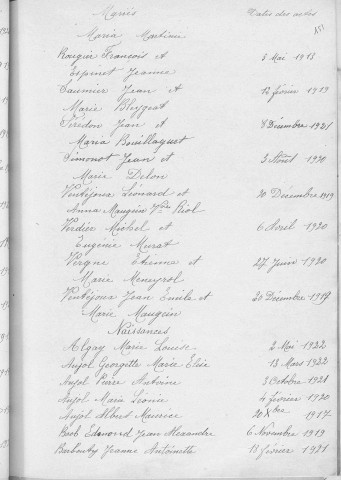 Mariés Dates des actes
Maria Martine
Rougier François et 3 Mai 1913
Espinet Jeanne
Saumier Jean et 12 février 1919
Marie Bleygeat
Tiridon Jean et 8 Décembre 1921
Maria Bouillaguet
Simonot Jean et 3 Août 1920
Marie Delon
Ventéjoux Léonard et 20 Décembre 1919
Anna Mauguin Vve Riol
Verdier Michel et 6 Avril 1920
Eugénie Murat
Vergne Etienne et 27 Juin 1920
Marie Meneyrol
Ventéjoux Jean Emile et 20 Décembre 1919
Marie Mauguin
Naissances
Algay Marie Louise 2 Mai 1922
Anjol Georgette Marie Elise 13 Mars 1922
Anjol Pierre Antoine 3 Octobre 1921
Anjol Marie Léonie 4 février 1920
Anjol Albert Maurice 20 Xbre 1917
Barb Edmond Jean Alexandre 6 Novembre 1919
Barbouty Jeanne Antoinette 11 février 1921